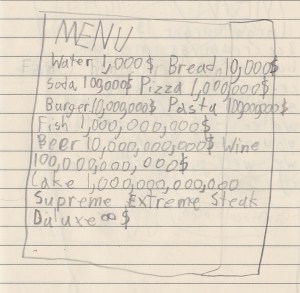 MENU
Water 1,000$ Bread 10,000$
Soda 100,000$ Pizza 1,000,000$
Burger 10,000,000$ Pasta 100,000,000$
Fish 1,000,000,000$
Beer 10,000,000,000$ Wine
100,000,000,000$
Cake 1,000,000,000,000
Supreme Extreme Steak
Daluxe ∞$